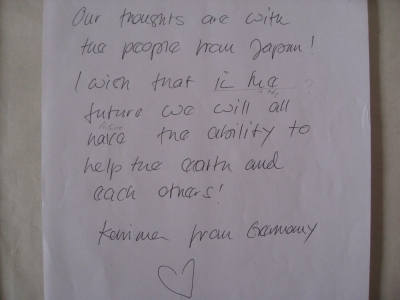 Our thoughts are with
the people from Japan!
I wish that in the ?
future we will all
have the ability to
help the earth and
each others!
from Germany